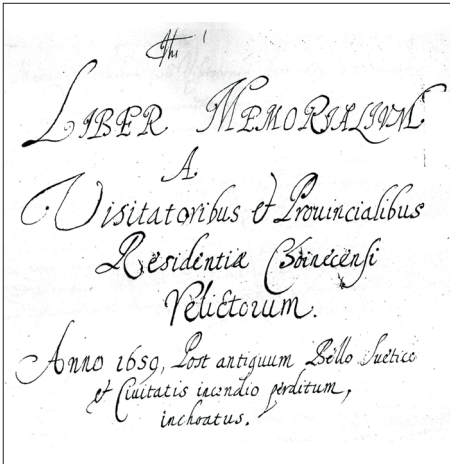 LIBER MEMORIALIVM
A
Visitatoribus et Prouincialibus
Residentiæ Choinecensi
Relictorum.
Anno 1659, Post antiquum Bello Suetico
et Ciuitatis incendio perditum,
inchoatus.